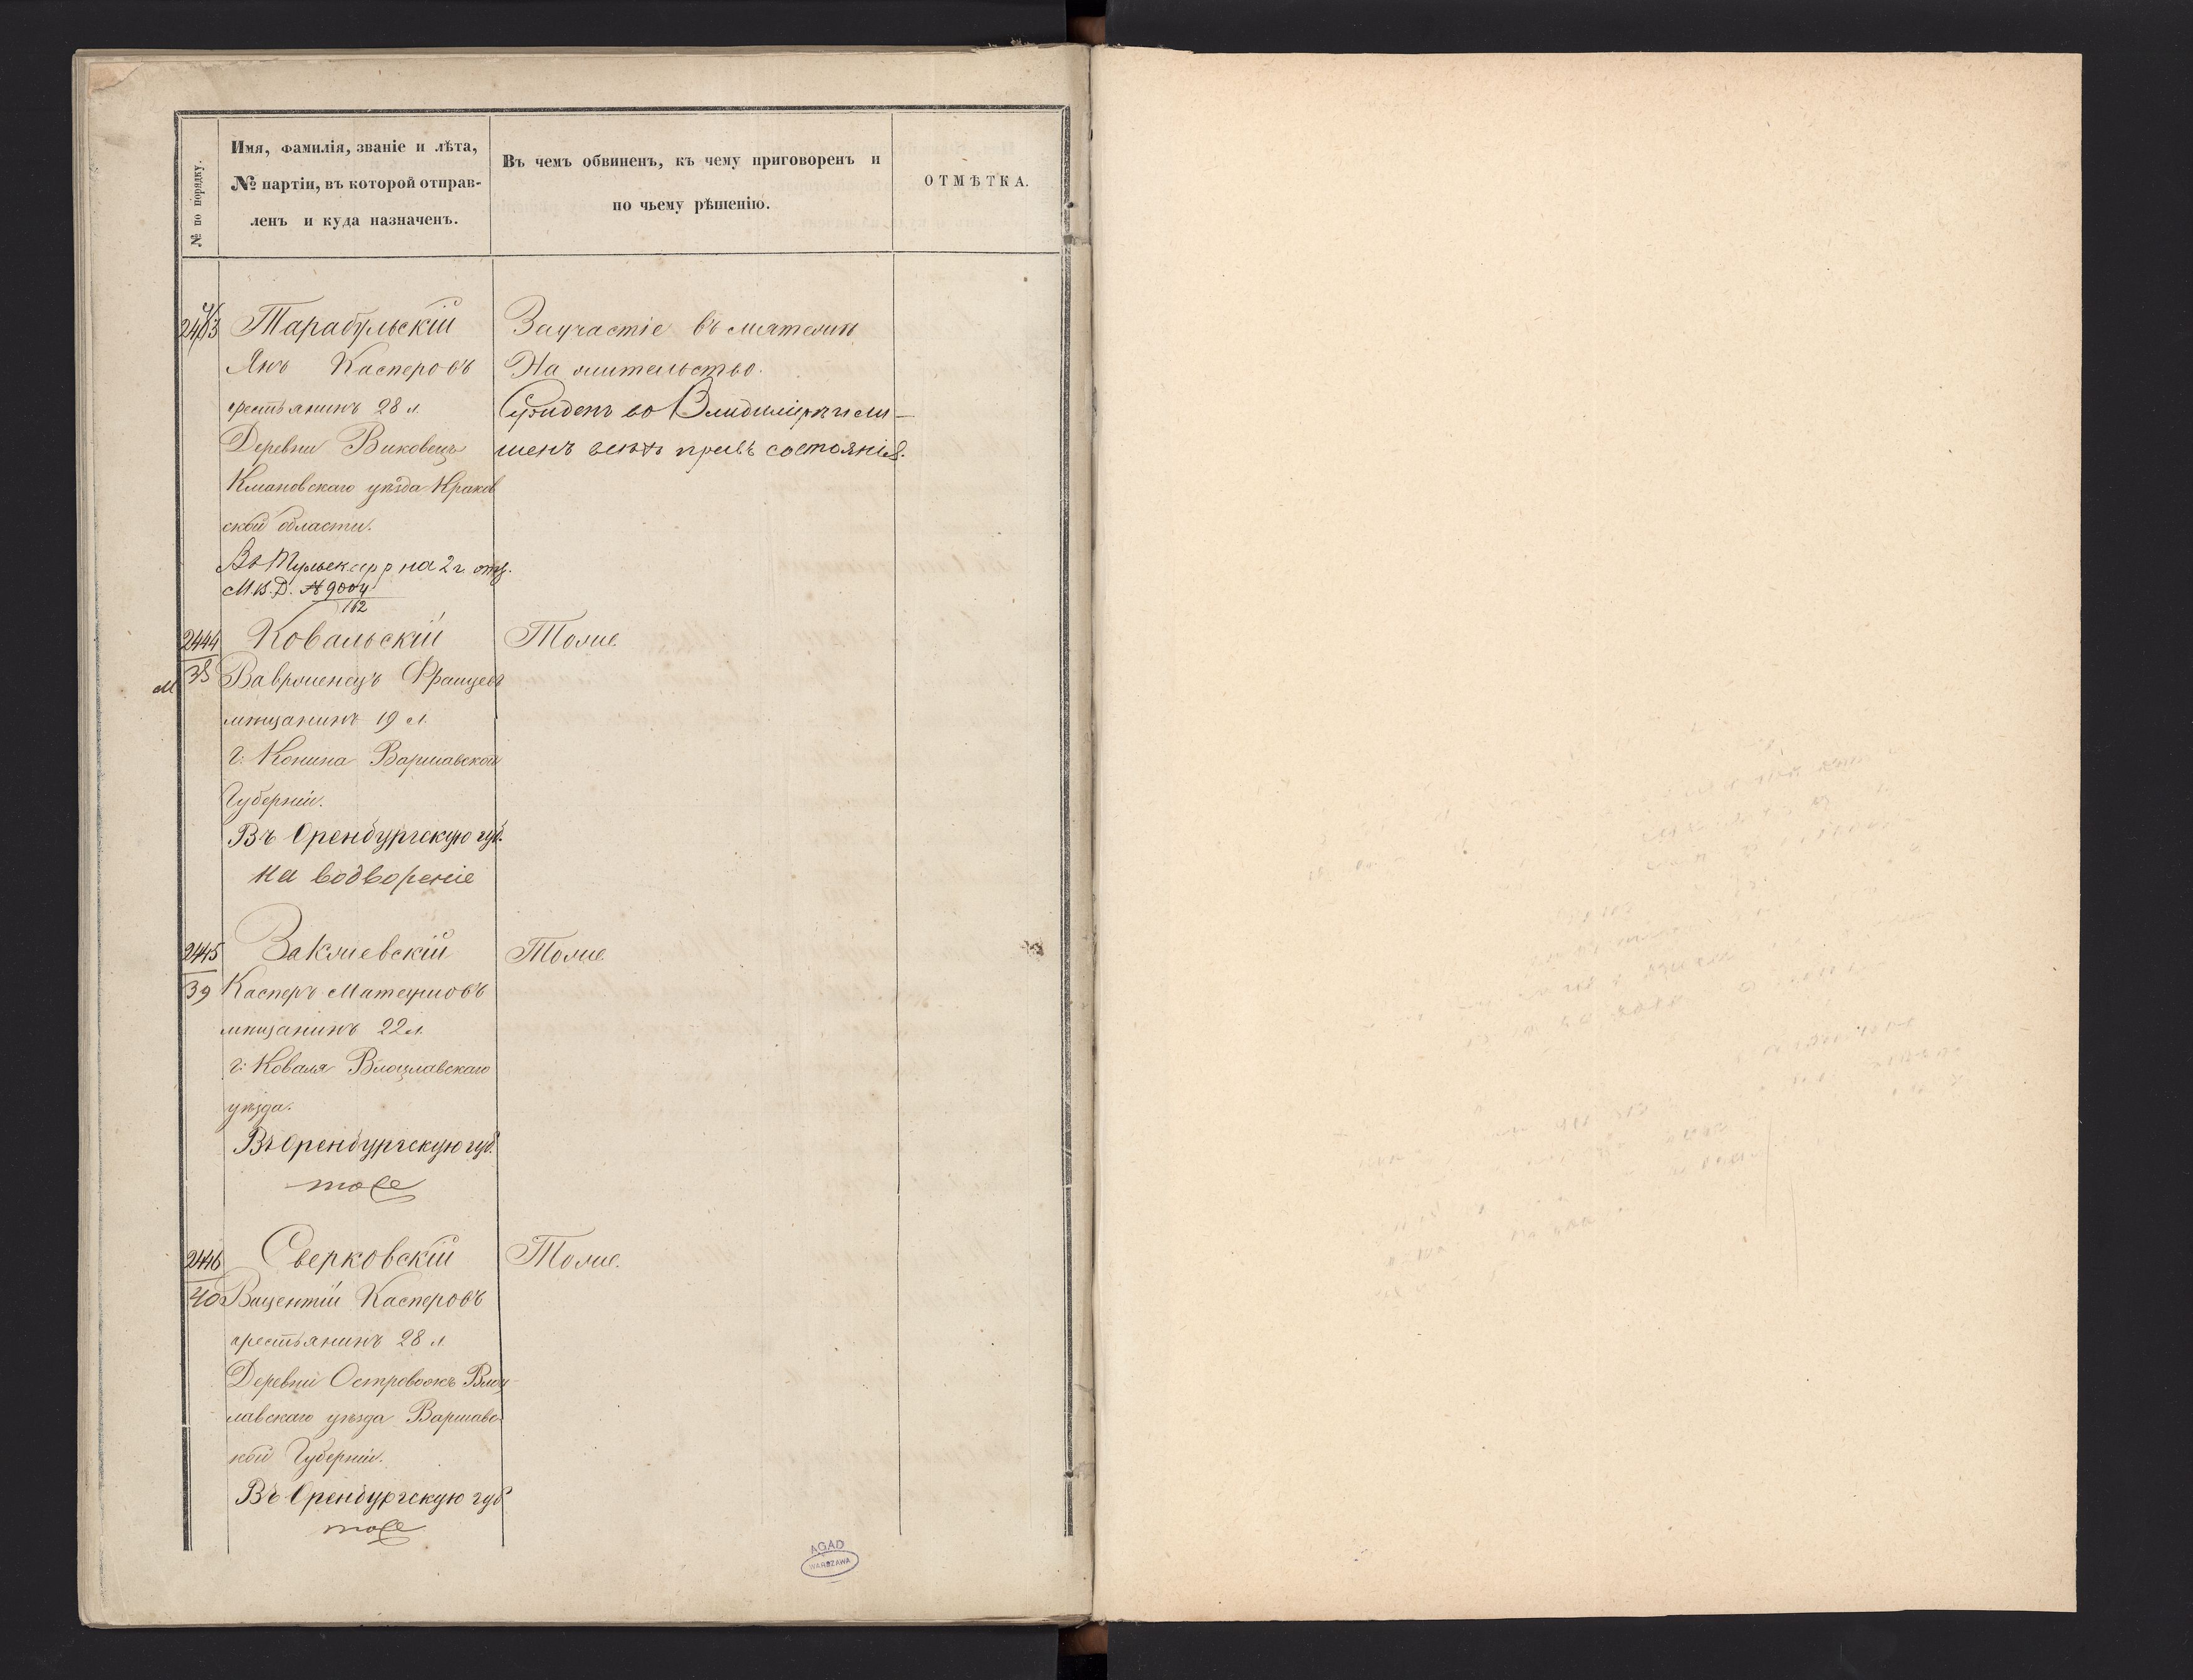 № по порядку.
Имя, фамилія, званіе и лѣта,
№ партіи, въ которой отправ-
ленъ и куда назначенъ.
Въ чемъ обвиненъ, къ чему приговоренъ и
по чьему рѣшенію.
ОТМѢТКА.
Тарабульскій
Янъ Касперовъ
крестьянинъ 28 л.
Деревни Виковецъ
уѣзда Краков
ской области.
на 2 г.
М.В.Д. № 9004
162
За участіе въ мятежѣ
На жительство.
Сужденъ во Владимірѣ и ли-
шенъ всѣхъ правъ состоянія.
2444
38
Ковальскій
Ваврженецъ Францевъ
мѣщанинъ 19 л.
г. Конина Варшавской
Губерніи.
Въ Оренбургскую губ.
на водвореніе
Тоже
2445
39
Закржевскій
Касперъ Матеушовъ
мѣщанинъ 22 л.
г. Коваля Влоцлавскаго
уѣзда.
Въ Оренбургскую губ.
тоже
Тоже
2446
40
Сверковскій
Вицентій Касперовъ
крестьянинъ 28 л
Деревни Влоц-
лавскаго уѣзда Варшавс-
кой Губерніи.
Въ Оренбургскую губ
тоже
Тоже.
AGAD
WARSZAWA